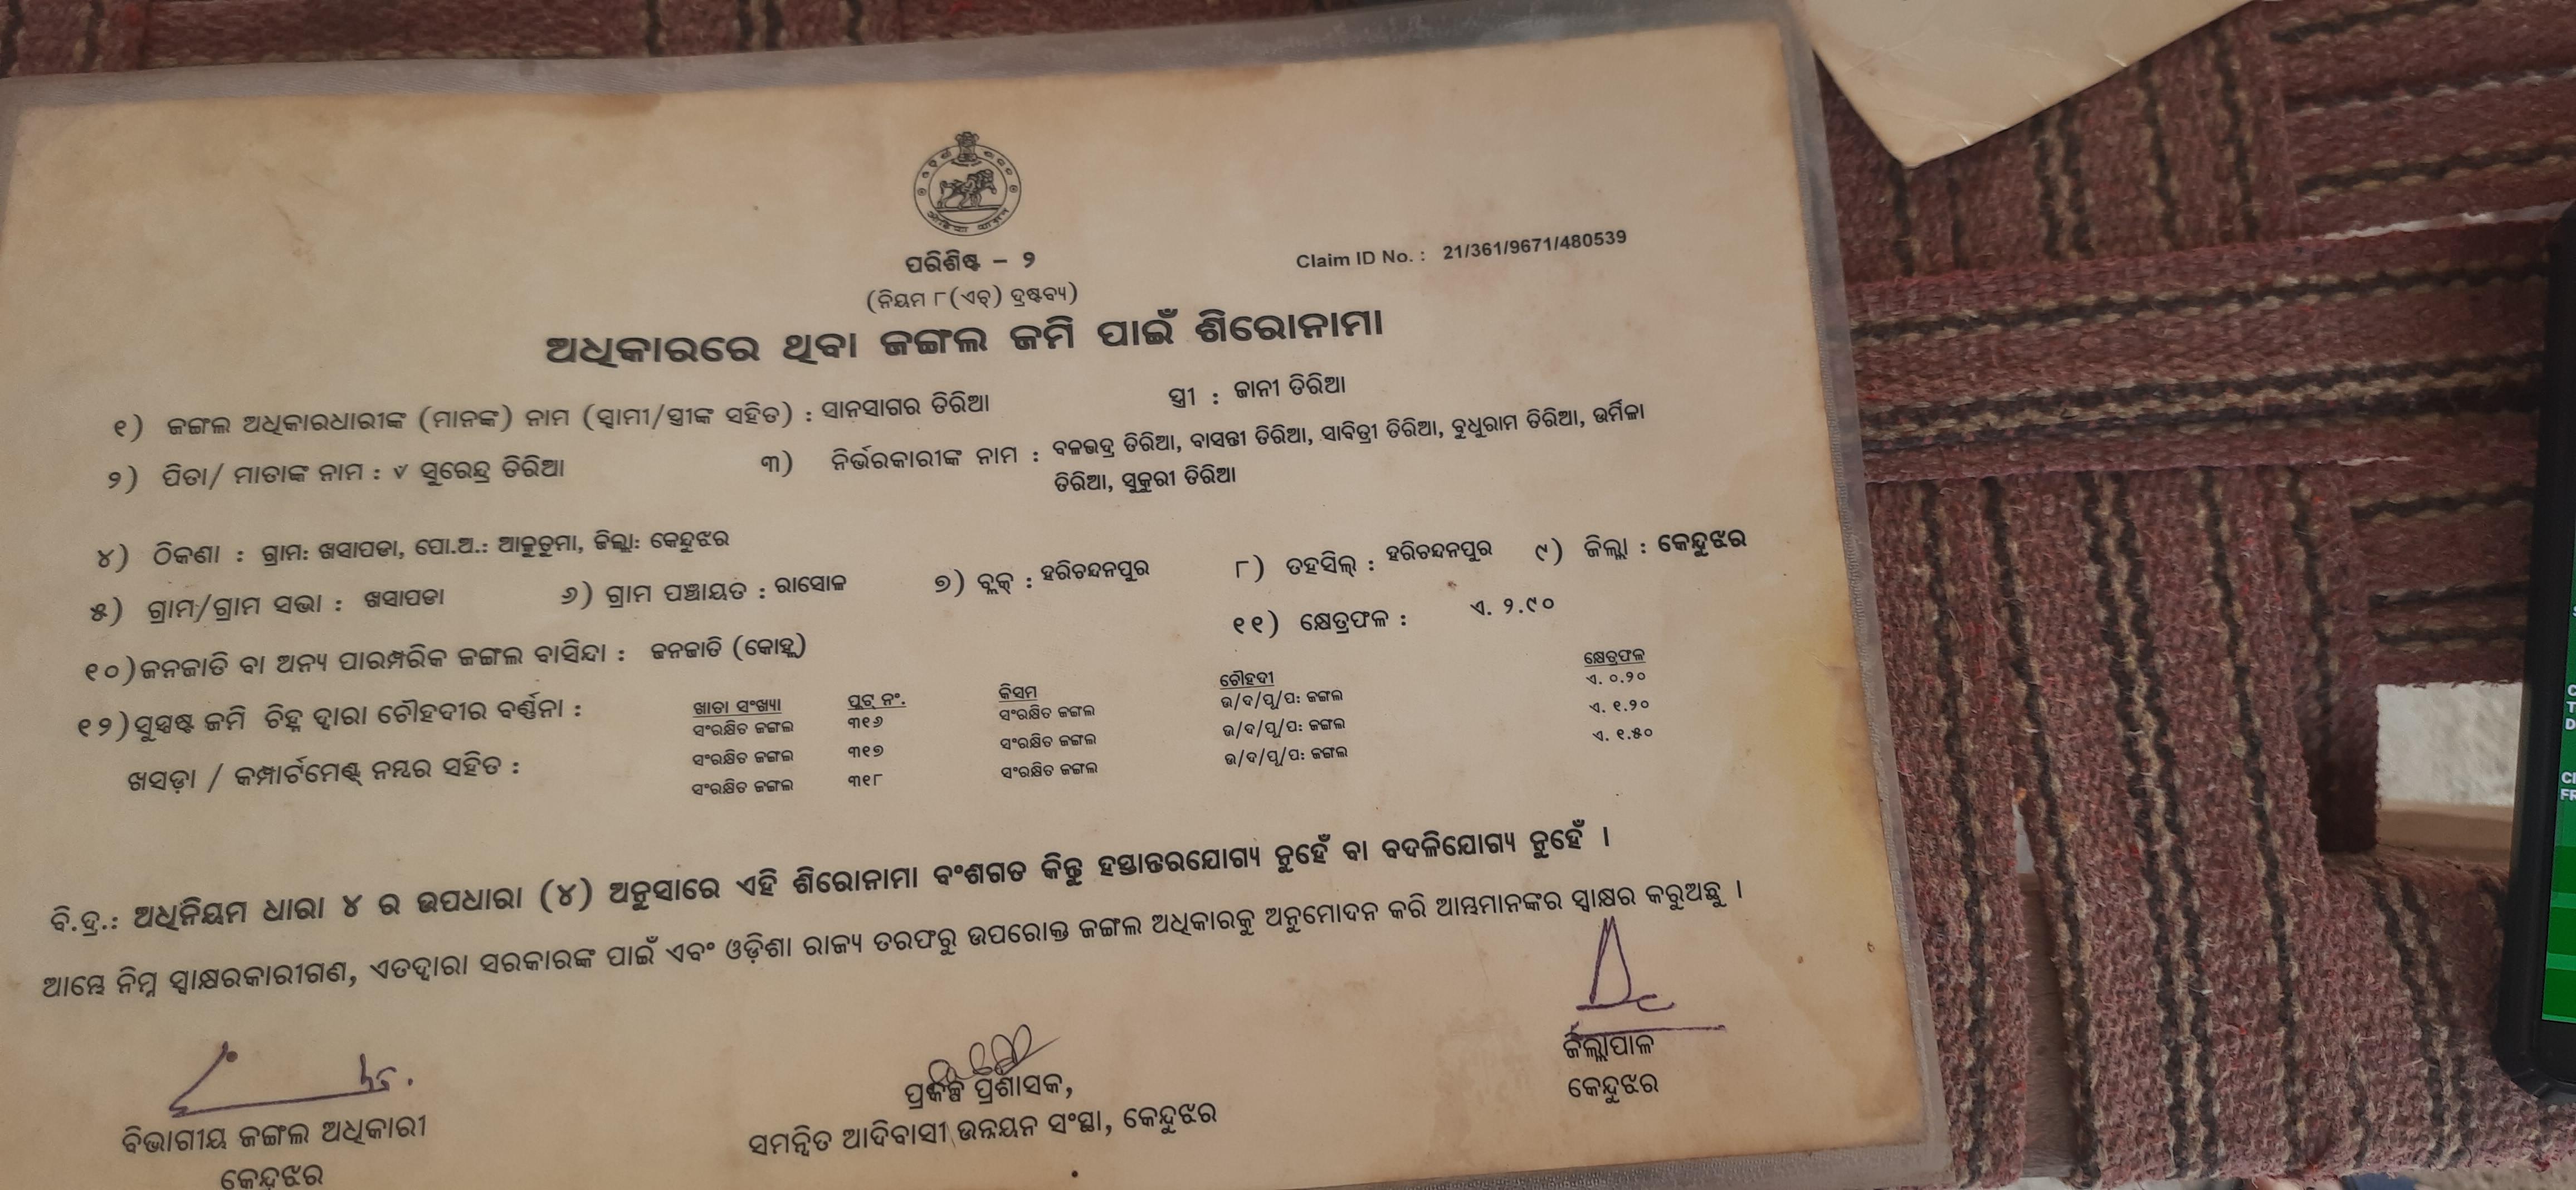 ପରିଶିଷ୍ଟ – ୨
Claim ID No. : 21/361/9671/480539
(ନିୟମ ୮(ଏଚ୍) ଦ୍ରଷ୍ଟବ୍ୟ)
ଅଧିକାରରେ ଥିବା ଜଙ୍ଗଲ ଜମି ପାଇଁ ଶିରୋନାମା
୧) ଜଙ୍ଗଲ ଅଧିକାରଧାରୀଙ୍କ (ମାନଙ୍କ) ନାମ (ସ୍ୱାମୀ/ସ୍ତ୍ରୀଙ୍କ ସହିତ) : ସାନସାଗର ତିରିଆ ସ୍ତ୍ରୀ : ଜାନୀ ତିରିଆ
୨) ପିତା/ ମାତାଙ୍କ ନାମ : ୰ ସୁରେନ୍ଦ୍ର ତିରିଆ ୩) ନିର୍ଭରକାରୀଙ୍କ ନାମ : ବଳଭଦ୍ର ତିରିଆ, ବାସନ୍ତୀ ତିରିଆ, ସାବିତ୍ରୀ ତିରିଆ, ବୁଧୁରାମ ତିରିଆ, ଉର୍ମିଳା
ତିରିଆ, ସୁକୁରୀ ତିରିଆ
୪) ଠିକଣା : ଗ୍ରାମ: ଖସାପଡା, ପୋ.ଅ.: ଆକୁତୁମା, ଜିଲ୍ଲା: କେନ୍ଦୁଝର
୫) ଗ୍ରାମ/ଗ୍ରାମ ସଭା : ଖସାପଡା ୬) ଗ୍ରାମ ପଞ୍ଚାୟତ : ରାସୋଳ ୭) ବ୍ଲକ୍ : ହରିଚନ୍ଦନପୁର ୮) ତହସିଲ୍ : ହରିଚନ୍ଦନପୁର ୯) ଜିଲ୍ଲା : କେନ୍ଦୁଝର
୧୦) ଜନଜାତି ବା ଅନ୍ୟ ପାରମ୍ପରିକ ଜଙ୍ଗଲ ବାସିନ୍ଦା : ଜନଜାତି (କୋହ୍ଲ) ୧୧) କ୍ଷେତ୍ରଫଳ : ଏ. ୨.୯୦
୧୨) ସୁସ୍ପଷ୍ଟ ଜମି ଚିହ୍ନ ଦ୍ୱାରା ଚୌହଦୀର ବର୍ଣ୍ଣନା : ଖାତା ସଂଖ୍ୟା ପ୍ଲଟ୍ ନଂ. କିସମ ଚୌହଦୀ କ୍ଷେତ୍ରଫଳ
ସଂରକ୍ଷିତ ଜଙ୍ଗଲ ୩୧୬ ସଂରକ୍ଷିତ ଜଙ୍ଗଲ ଉ/ଦ/ପୂ/ପ: ଜଙ୍ଗଲ ଏ. ୦.୨୦
ସଂରକ୍ଷିତ ଜଙ୍ଗଲ ୩୧୭ ସଂରକ୍ଷିତ ଜଙ୍ଗଲ ଉ/ଦ/ପୂ/ପ: ଜଙ୍ଗଲ ଏ. ୧.୨୦
ଖସଡ଼ା / କମ୍ପାର୍ଟମେଣ୍ଟ୍ ନମ୍ବର ସହିତ : ସଂରକ୍ଷିତ ଜଙ୍ଗଲ ୩୧୮ ସଂରକ୍ଷିତ ଜଙ୍ଗଲ ଉ/ଦ/ପୂ/ପ: ଜଙ୍ଗଲ ଏ. ୧.୫୦
ବି.ଦ୍ର.: ଅଧିନିୟମ ଧାରା ୪ ର ଉପଧାରା (୪) ଅନୁସାରେ ଏହି ଶିରୋନାମା ବଂଶଗତ କିନ୍ତୁ ହସ୍ତାନ୍ତରଯୋଗ୍ୟ ନୁହେଁ ବା ବଦଳିଯୋଗ୍ୟ ନୁହେଁ ।
ଆମ୍ଭେ ନିମ୍ନ ସ୍ୱାକ୍ଷରକାରୀଗଣ, ଏତଦ୍ୱାରା ସରକାରଙ୍କ ପାଇଁ ଏବଂ ଓଡ଼ିଶା ରାଜ୍ୟ ତରଫରୁ ଉପରୋକ୍ତ ଜଙ୍ଗଲ ଅଧିକାରକୁ ଅନୁମୋଦନ କରି ଆମ୍ଭମାନଙ୍କର ସ୍ୱାକ୍ଷର କରୁଅଛୁ ।
ଜିଲ୍ଲାପାଳ
କେନ୍ଦୁଝର
ପ୍ରକଳ୍ପ ପ୍ରଶାସକ,
ସମନ୍ୱିତ ଆଦିବାସୀ ଉନ୍ନୟନ ସଂସ୍ଥା, କେନ୍ଦୁଝର
ବିଭାଗୀୟ ଜଙ୍ଗଲ ଅଧିକାରୀ
କେନ୍ଦୁଝର